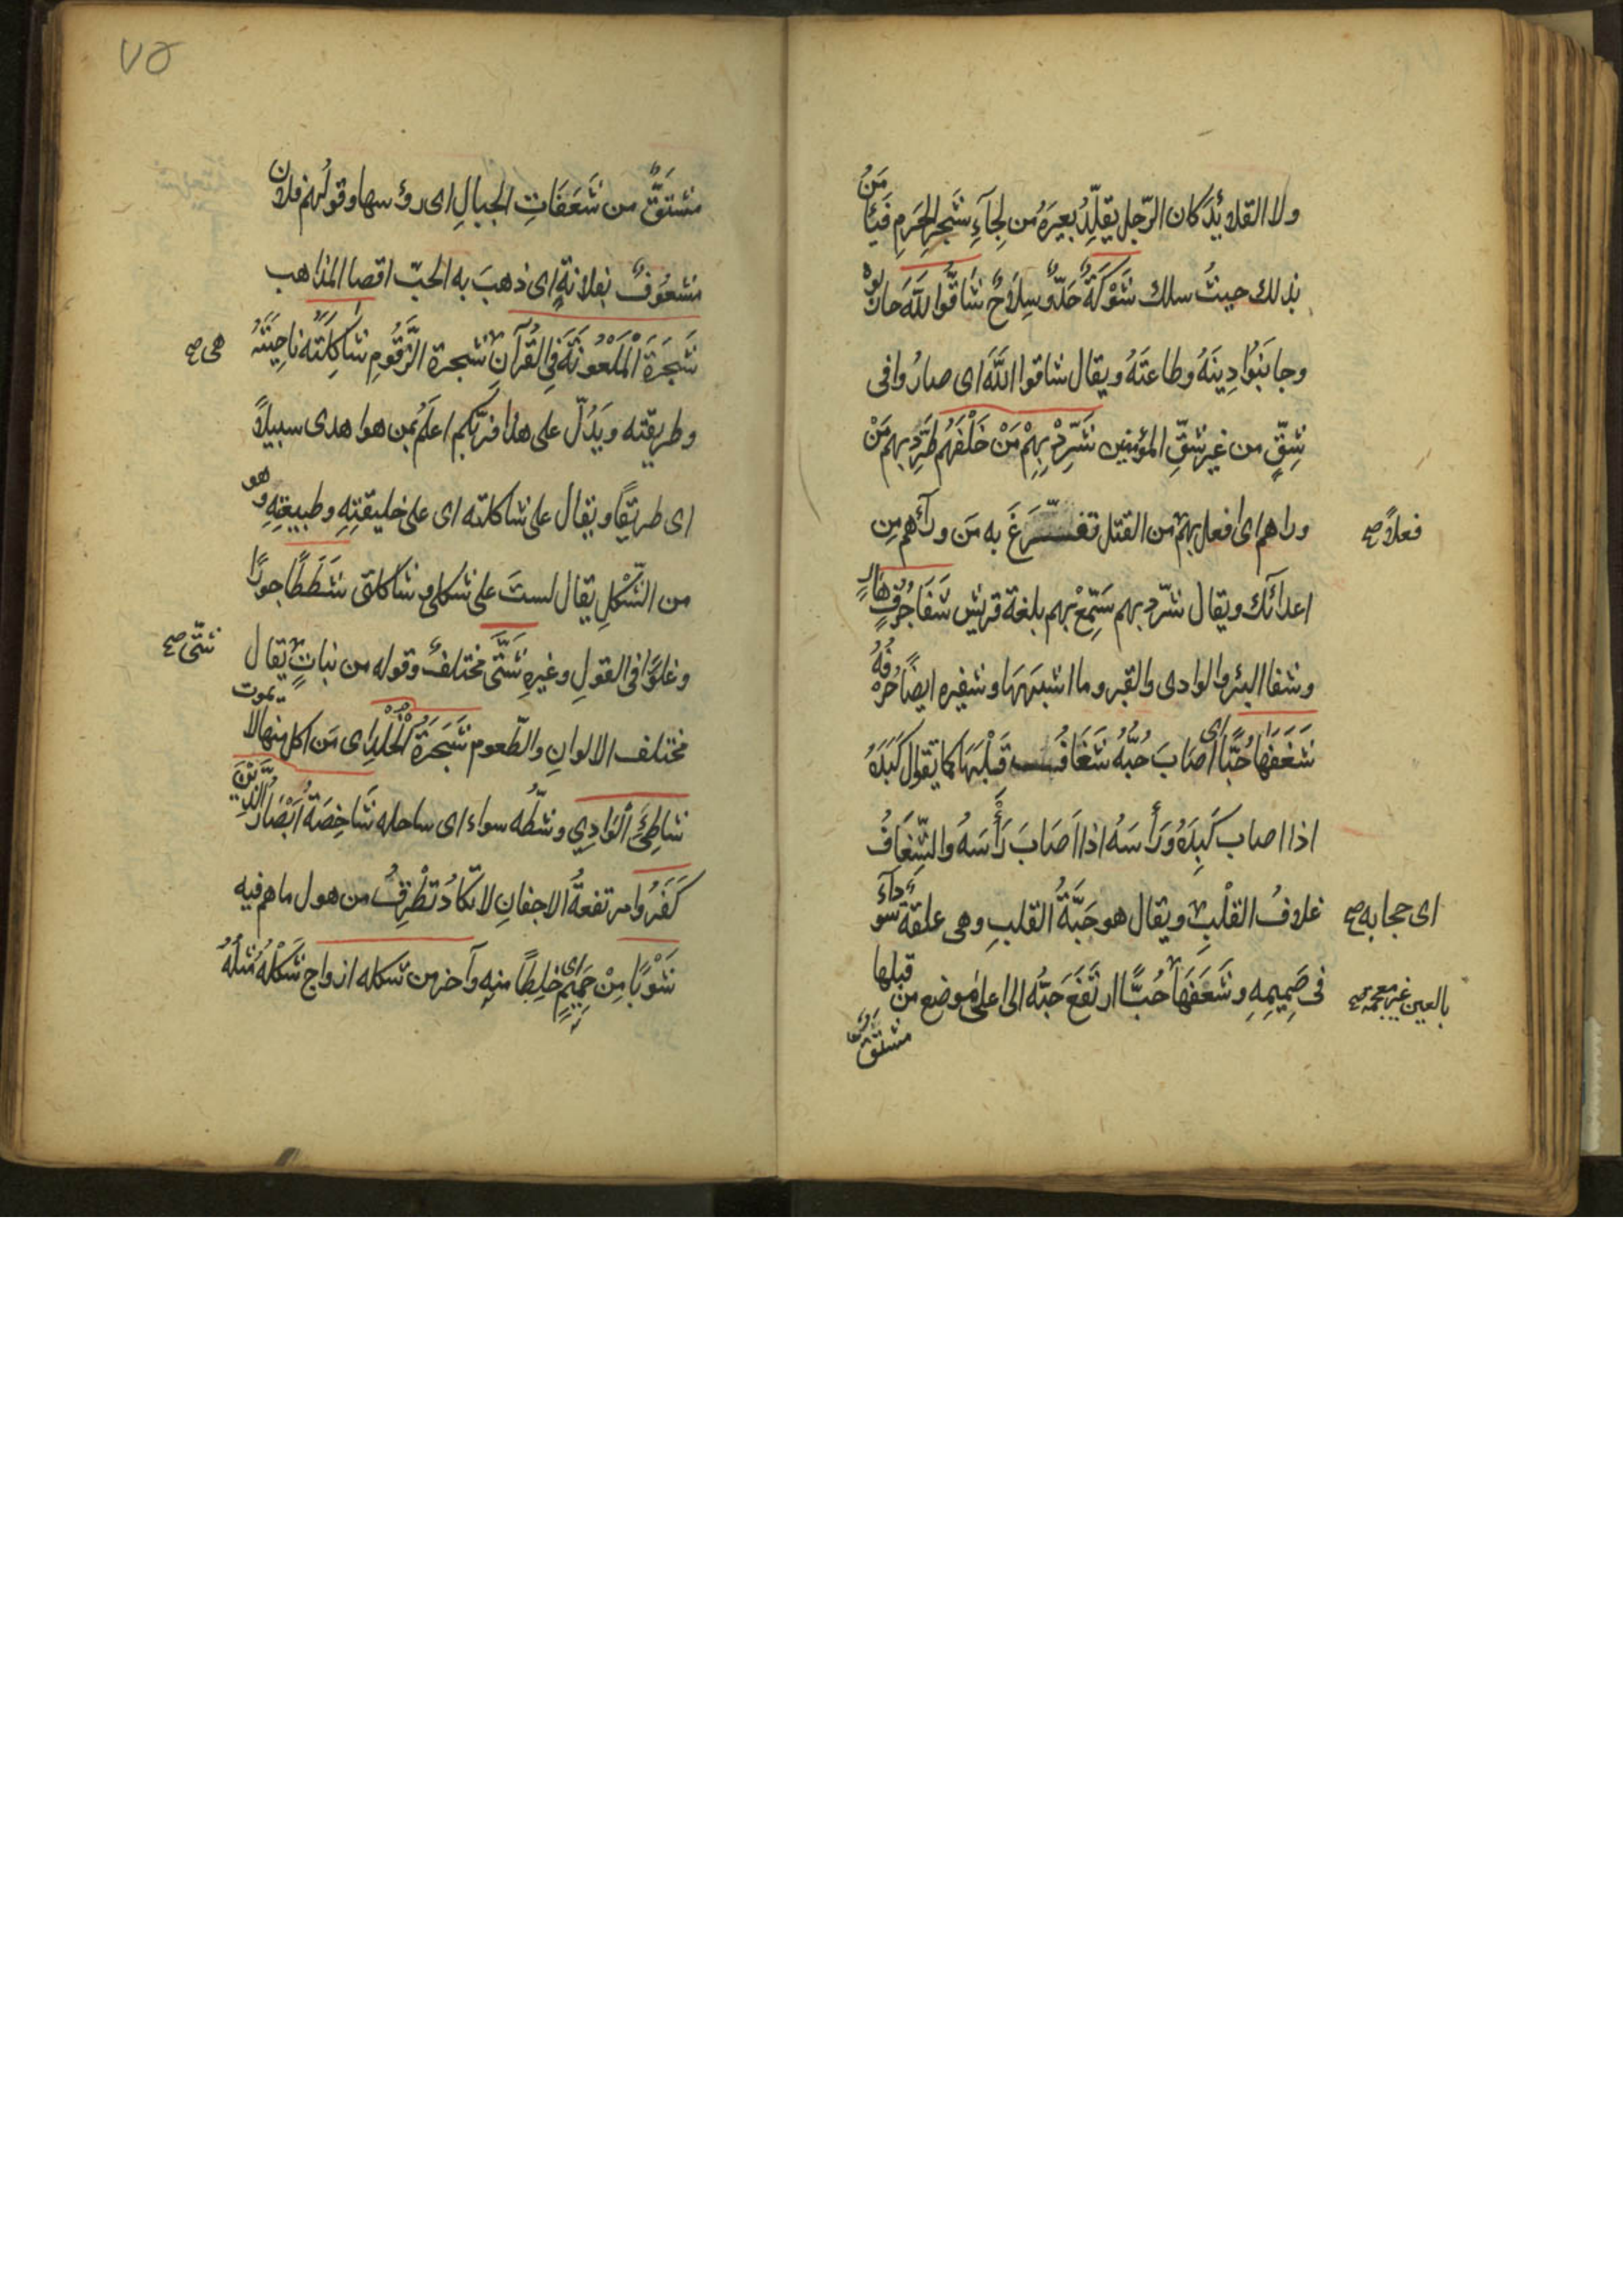 ولا القلائد كان الرّجل يقلّد بعيرَه من لِحاءِ شجر الحرم فَيَأمَنُ
بذلك حيث سلك شَوْكَةٌ حَدٌّ وسِلاحٌ شاقّوا اللّهَ حاربوه
وجانَبُوا دِينَهُ وطاعتَهُ ويقال شاقوا اللّهَ اى صارُوا فى
شِقٍّ من غير شِقِّ المؤمنين شَرِّدْ بِهِمْ مَنْ خَلْفَهُم طَرِّد بهم مَنْ
وراهم اى افعل بهم من القتل
فعلاً صح
به مَن ورآءهم مِن
اعدائك ويقال شرّد بهم سَمِّعْ بهم بلغة قريش شَفَا جُرُفٍ هَارٍ
وشفا البئر والوادى والقبر وما اشبهَهَا وشفيره ايضًا حَرْفُهُ
شَغَفَهَا حُبًّا اى اصَابَ حُبُّهُ شَغَافُ قَلْبَهَا كما تقول كَبَدَهُ
اذا اصاب كَبِدَهُ وَرَأَسَهُ اذا اَصَابَ رَأْسَهُ والشَّغَافُ
غلافُ القلْبِ
اى حجابه صح
ويقال هو حَبَّةُ القلبِ وهى علقة سودآءُ
فى صَمِيمِهِ وشَعَفَهَا
بالعين غير معجمة صح
حُبًّا ارتَفَعَ حَبُّه الى اعلى موضع من قبلها
مشتقٌّ
٧٥
مشتقٌّ من شَعَفَاتِ الجبالِ اى رؤسها وقولهم فلان
مشعُوفٌ بفلانةٍ اى ذهبَ به الحبّ اقصا المذاهب
شَجَرَةَ الْمَلْعُونَةَ فِى القُرآنِ
هى صح
شجرة الزّقُّومِ شَاكِلَتِه ناحِيَتَهُ
وطريقته ويَدُلّ على هذا فربّكم اعلَمُ بمن هو اهدى سبيلاً
اى طريقًا ويقال على شاكلته اى على خليقتِهِ وطبيعتِهِ وهو
من الشَّكْلِ يقال لستَ على شكلى وشاكلتى شَطَطًا جورًا
وغلوًّا فى القولِ وغيرِه شَتَّى مختلفٌ وقوله من نباتٍ
شتّى صح
يقال
مختلف الالوانِ والطّعوم شَجَرَةُ الْخُلْدِ اى مَن اكل منها لا يموت
شاطِئَ الْوَادِى وشطّه سواء اى ساحله شَاخِصَةٌ اَبْصَارُ الّذِينَ
كَفَرُوا مرتفعةُ الاجفانِ لا تكادُ تَطْرِفُ من هول ما هم فيه
شَوْبًا مِنْ حَمِيمٍ اى خِلطًا منهِ وآخر من شكله ازواج شَكْلُهُ مثلُهُ